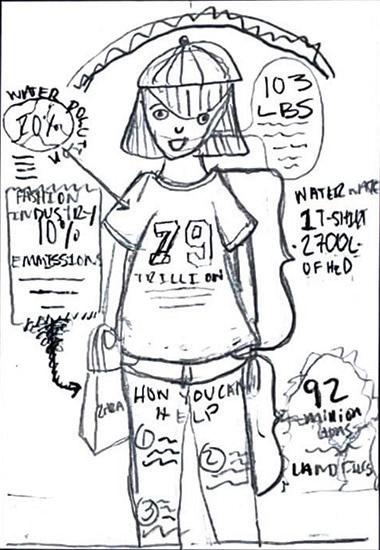 WATER
POLUT
ION
20%
103
LBS
FASHION
INDUSTRY
10%
EMMISSIONS
WATER
1 T-SHIRT
2700L
OF H2O
79
TRILLION
ZARA
HOW YOU CAN
HELP
1
2
3
92
MILLION
TONS
LANDFILLS